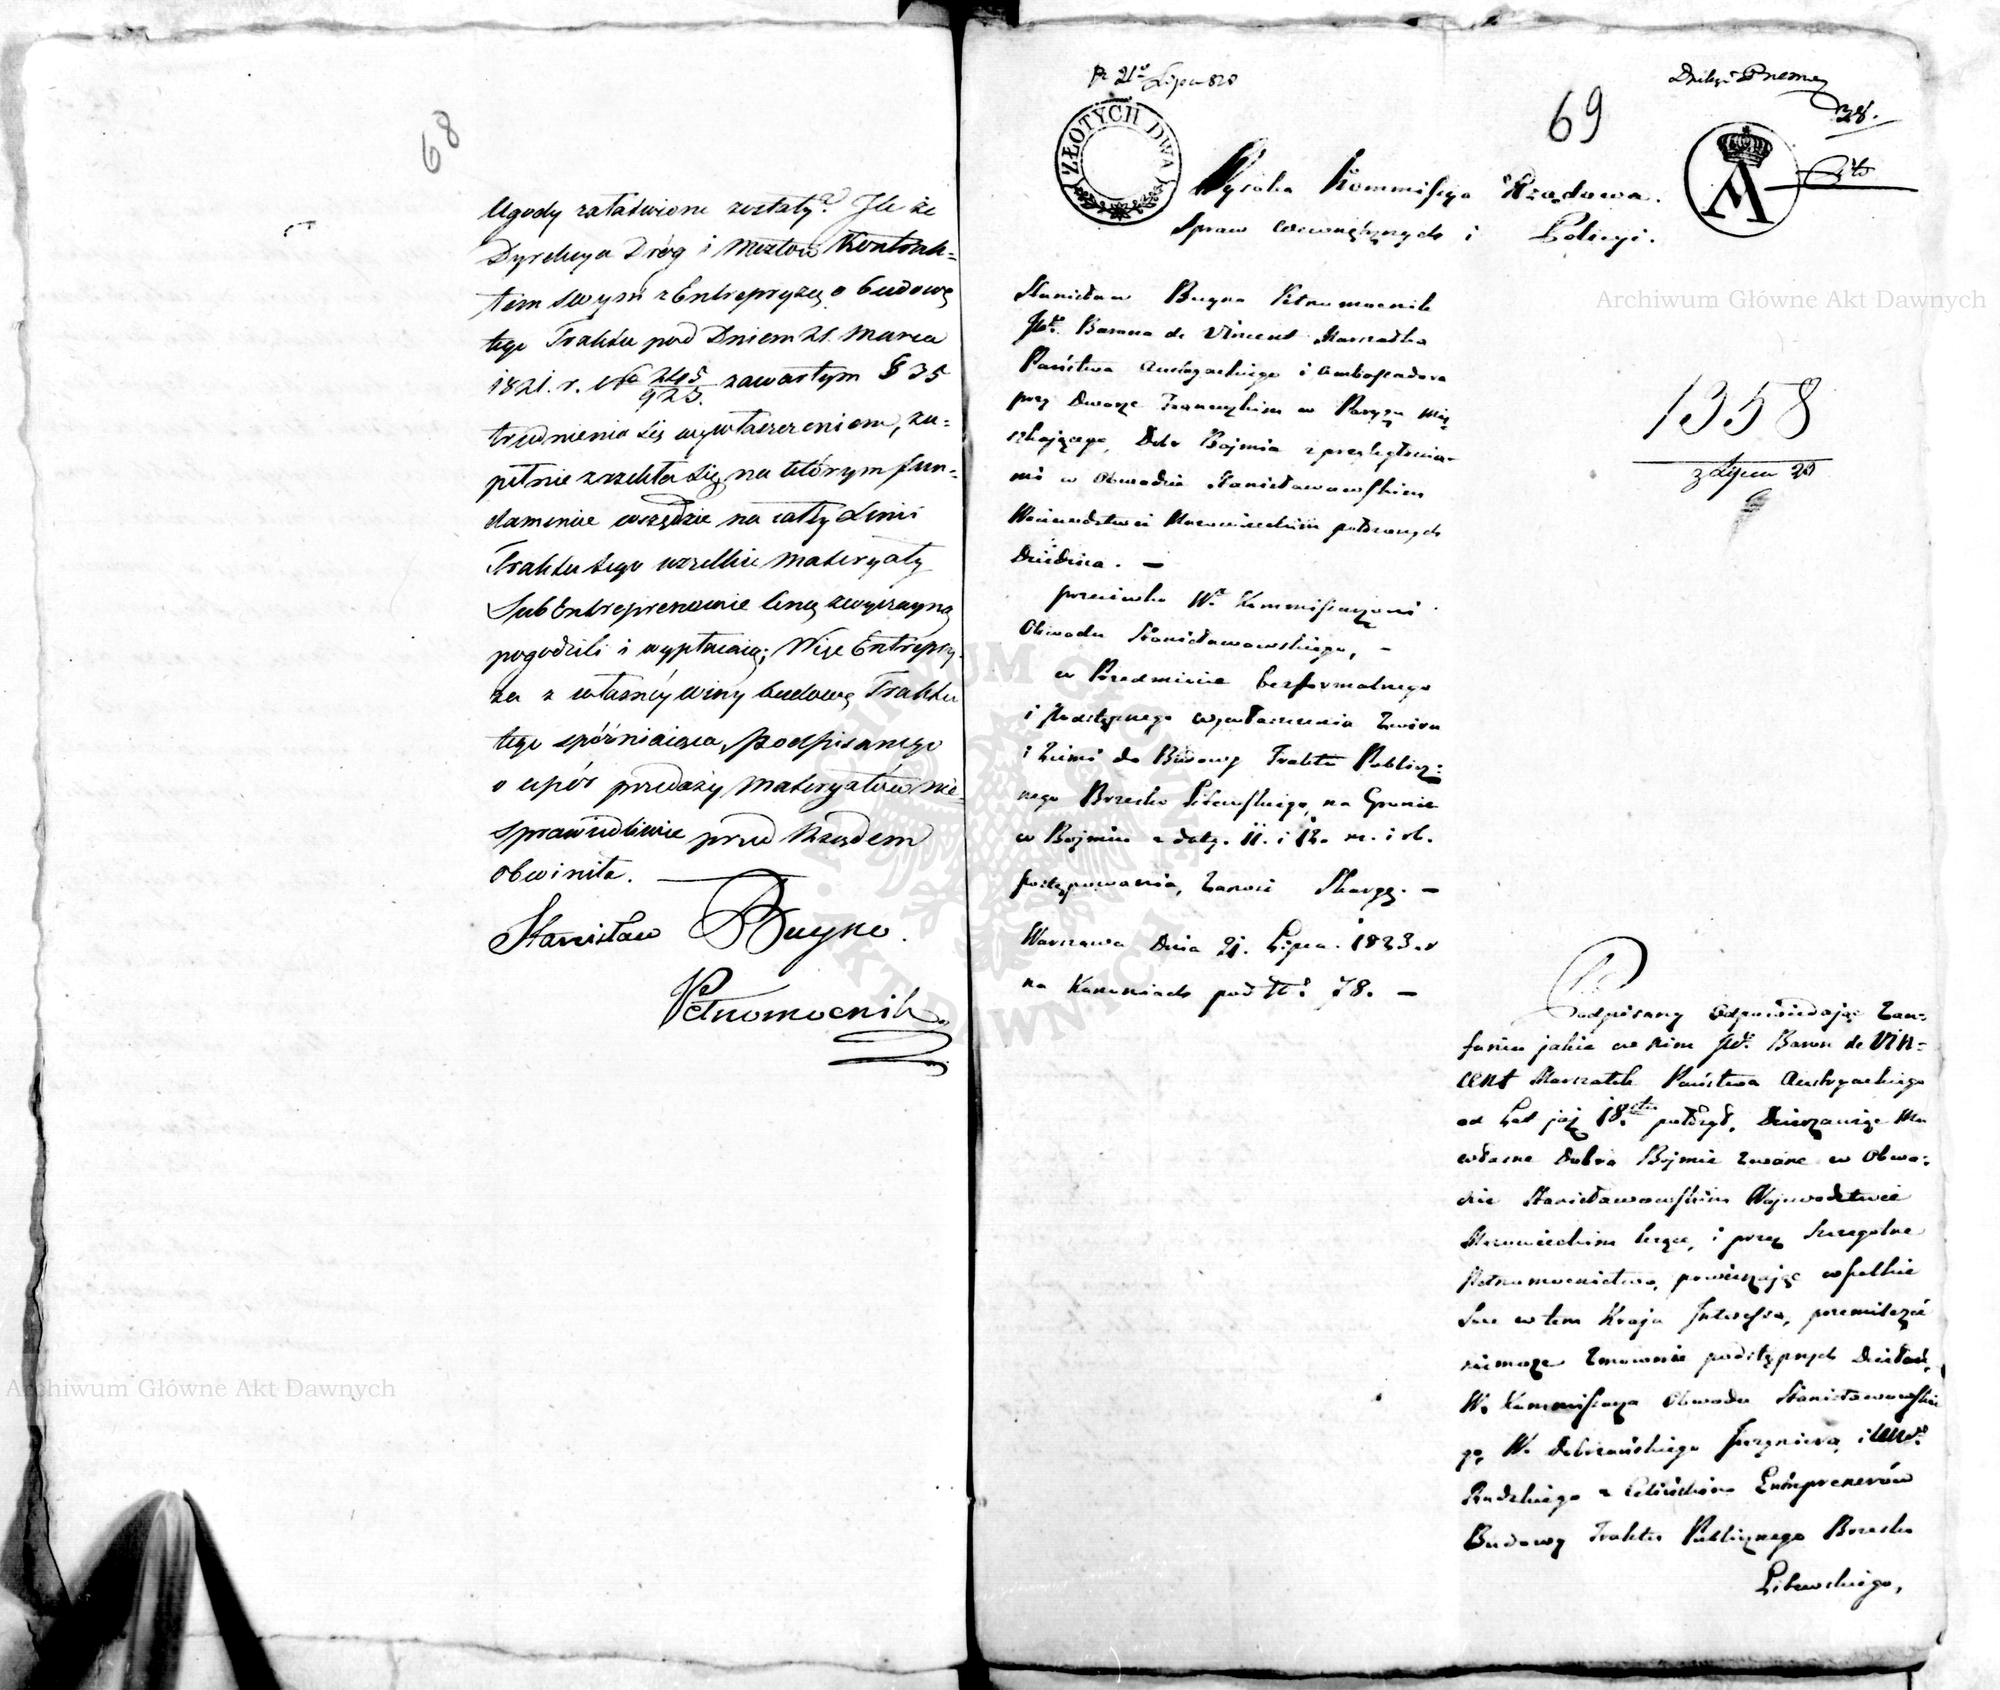 68
Ugody załatwione zostały? Ile że
Dyrekcya Dróg i Mostów Kontrak=
tem swym z Entrepryzą o budowę
tego Traktu pod Dniem 21. Marca
1821. r. No 2405/925. zawartym § 35
trudnienia się wywłaszczeniem, zu=
pełnie zrzekła się, na którym fun=
damencie wszędzie na całey Linii
Traktu tego wszelkie Materyały
SubEntreprenerowie ceną zwyczayną
pogodzili i wypłacaią; Więc Entrepry=
za z własnéy winy budowę Traktu
tego spóźniaiąca, podpisanego
o upór przedaży Materyałów nie=
sprawiedliwie przed Rządem
obwiniła.
Stanisław Buyno.
Pełnomocnik
21o Lipca 828
69
28.
ZŁOTYCH DWA
Wysoka Kommissya Rządowa.
Spraw wewnętrznych i Policyi.
Stanisław Buyno Pełnomocnik
JW. Barona de Vincent Marszałka
Państwa Austryackiego i Ambassadora
przy Dworze Francuzkim w Paryżu mię=
szkającego, Dóbr Bojmia z przyległościa=
mi w Obwodzie Stanisławowskim
Woiewództwie Mazowieckim położonych
Dziedzica. —
przeciwko W. Kommissarzowi
Obwodu Stanisławowskiego, —
w Przedmiocie bezformalnego
i podstępnego wywłaszczenia Żwiru
i Ziemi do Budowy Traktu Publicz=
nego Brzesko Litewskiego, na Gruncie
w Bojmiu z daty. 11. i 12. m. i r.
postępowania, Zanosi Skargę. —
Warszawa Dnia 21. Lipca. 1823. r
na Kanoniach pod N. 78. —
1358
z Lipca 23
Podpisany odpowiadając Zau=
faniu jakie w nim JW. Baron de Vin=
cent Marszałek Państwa Austryackiego
od Lat już 18stu położył, Dzierżawiąc Mu
własne Dobra Bojmie zwane w Obwo=
dzie Stanisławowskim Wojewodztwie
Mazowieckim leżące, i przez Szczególne
Pełnomocnictwo, powierzając wszelkie
Swe w tem Kraju Interessa, przemilczeć
niemoże Zmownie podstępnych Działań,
W. Kommissarza Obwodu Stanisławowskie=
go, W. Inżyniera, i
Rudzkiego z Entreprenerów
Budowy Traktu Publicznego Brzesko
Litewskiego,
Archiwum Główne Akt Dawnych
Archiwum Główne Akt Dawnych